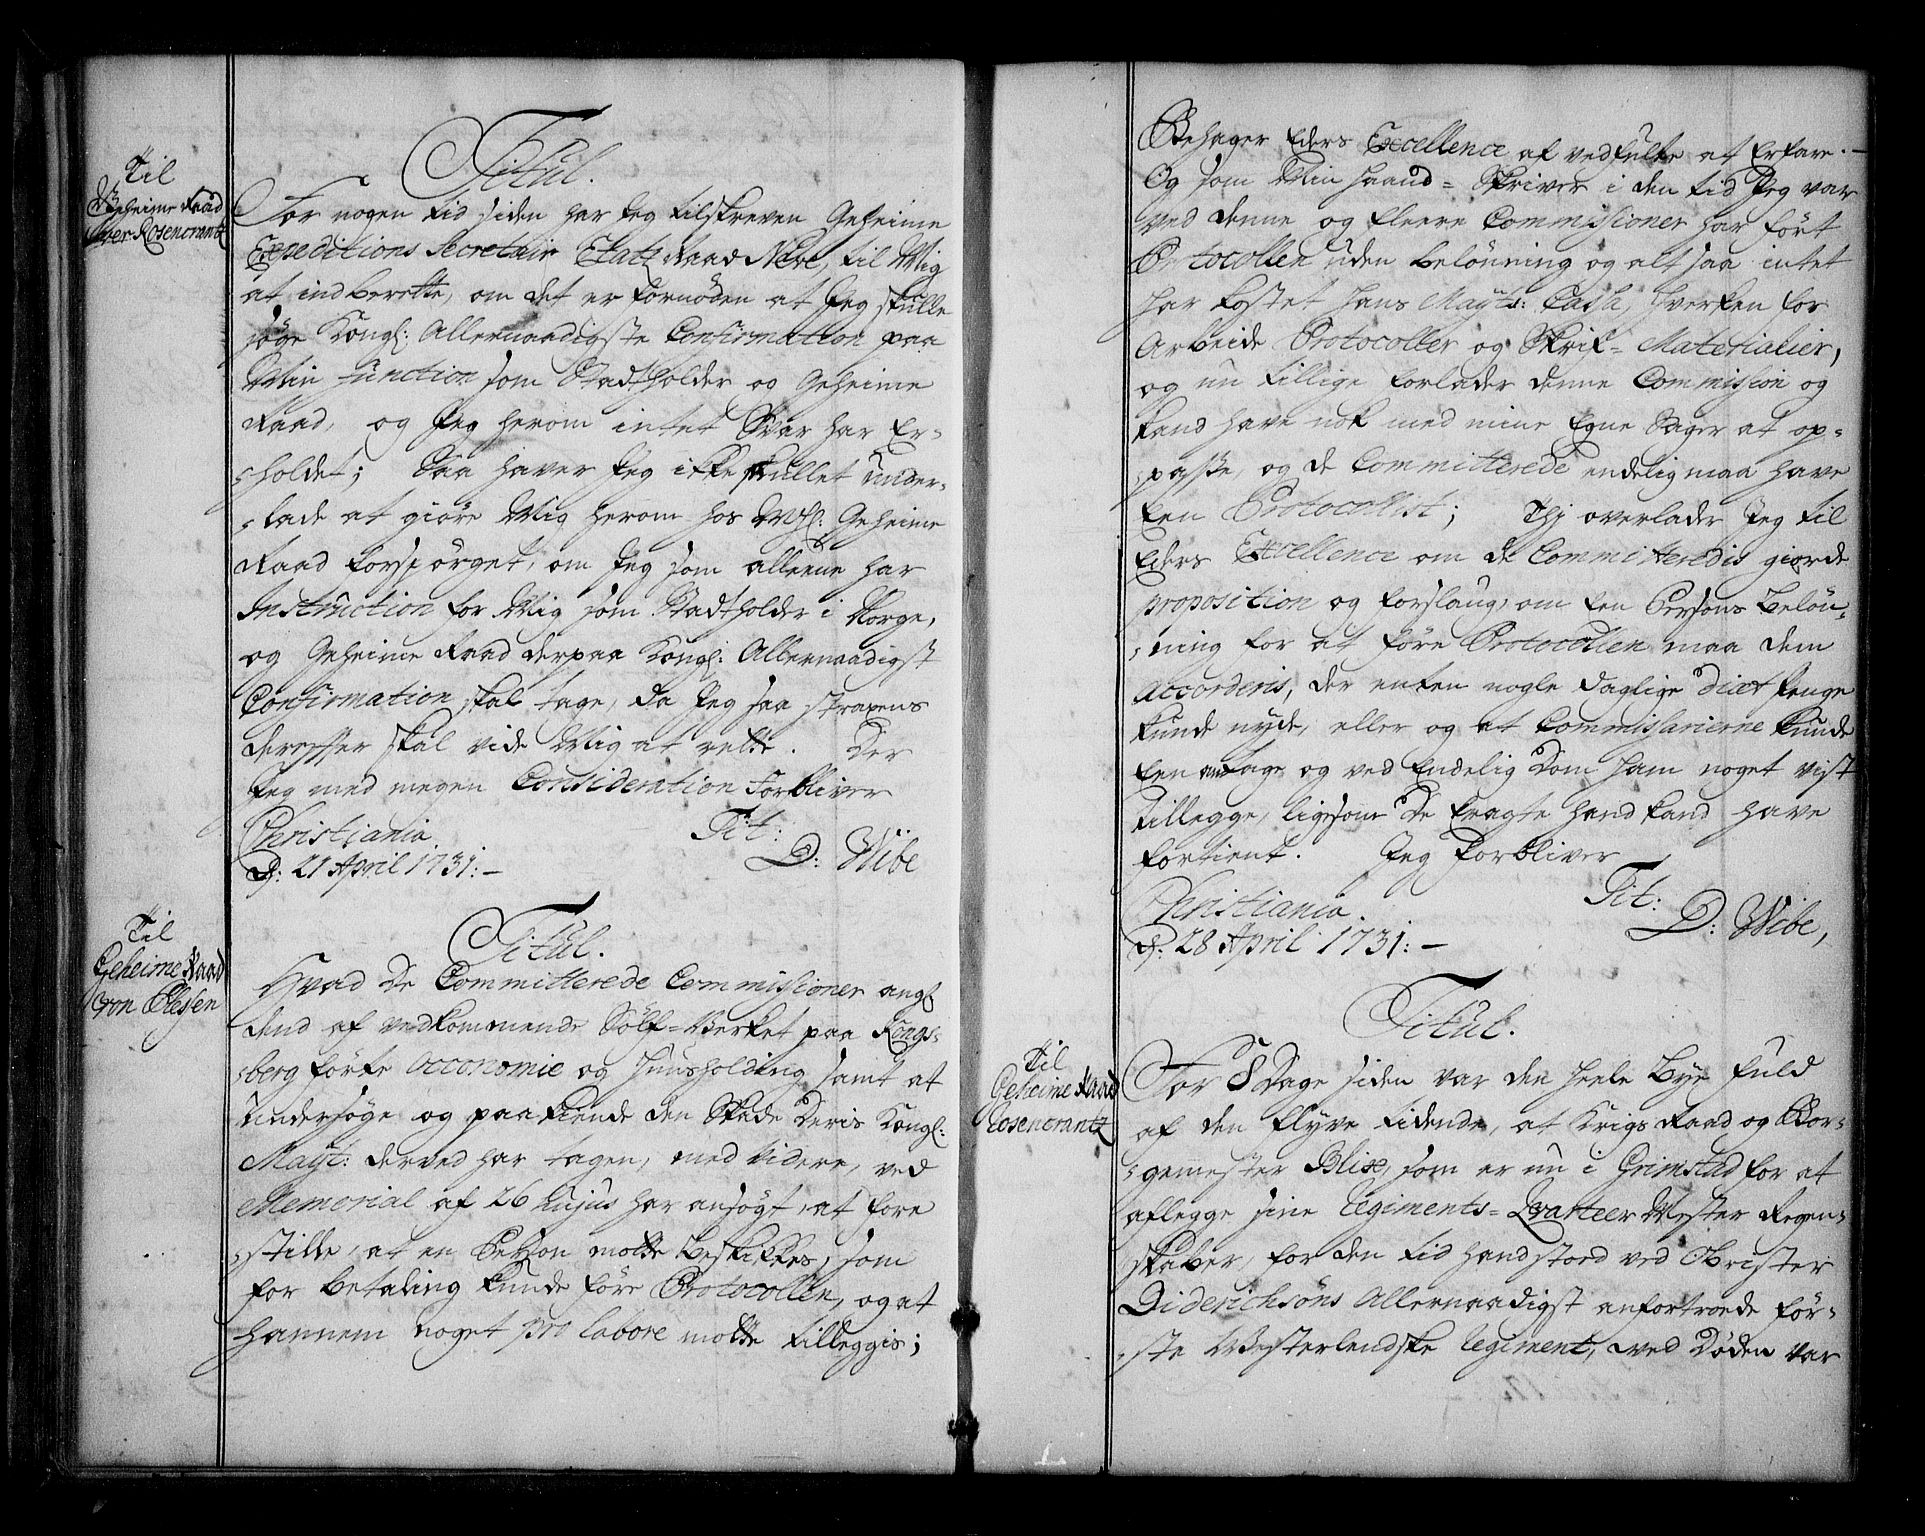 Til
Geheime Raad
Iver Rosencrantz
Titul.
For nogen tid siden har Jeg tilskreven Geheime
Expeditions Secretair Etatz Raad Neve, til Mig
at indberette, om det er fornøden at Jeg skulle
søge Kongl: Allernaadigste Confirmation paa
Min function som Stadtholder og Geheime
Raad, og Jeg herom intet Svar har Er-
-holdet; Saa haver Jeg ikke skullet under-
-lade at giøre Mig herom hos Geheime
Raad forspørget, om Jeg som alleene har
Instruction for Mig som Stadtholder i Norge,
og Geheime Raad derpaa Kongl: Allernaadigst
Confirmation skal tage, da Jeg saa straxens
derefter skal vide Mig at rette. Der
Jeg med megen Consideration Forbliver
Christiania Tit:
d: 21 April 1731:- D: Wibe
Til
Geheime Raad
von Plessen
Titul.
Hvad De Committerede Commissioner angl
dend af vedkommende Sølf-Verket paa Kongs-
-berg førte Oeconomie og Huusholding samt at
Undersøge og paakiende den Skade Deris Kongl:
Mayt: derved har tagen, med videre, ved
Memorial af 26 hujus har ansøgt, at fore
-stille, at en Person motte beskikkes, som
for betaling kunde føre Protocollen, og at
hannem noget pro labore motte tilleggis;
Behager Eders Excellence af vedfulte at Erfare.-
Og som Min Haand-Skriver i den tid Jeg var
ved denne og fleere Commissioner har ført
Protocollen uden belønning og alt saa intet
har kostet Hans Mayts: Cassa, hverken for
Arbeide Protocoller og Skrif-Materialier,
og nu tillige forlader denne Commission og
kand have nok med mine Egne Sager at op-
-passe, og de Committerede endelig maa have
Een Protocollist; Thj overlader Jeg til
Eders Excellence om de Committeredis giorde
proposition og forslaug, om Een Persons beløn-
-ning for at føre Protocollen maa dem
accorderis, der enten nogle daglige diæt penge
kunde nyde, eller og at Commissarierne kunde
Een antage og ved Endelig Dom ham noget vist
tillegge, ligesom De Eragte hand kand have
fortient. Jeg Forbliver
Christiania. Tit:
d: 28 April 1731:- D: Wibe,
Til
Geheime Raad
Rosencrantz
Titul.
For 8 Dage siden var den heele Bye fuld
af den flyve tidende, at Krigs Raad og Bor-
-gemester Blix, som er nu i Grimstad for at
aflegge sine Regiments-Qvarteer Mester Regen-
skaber, for den tid hand stoed ved Obrister
Diderichsøns Allernaadigst anfortroede før-
-ste Westerlendske Regiment, ved Døden var